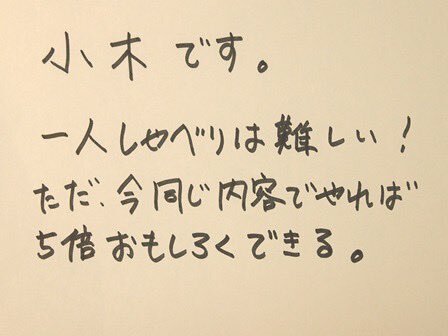 小木です。
一人しゃべりは難しい！
ただ、今同じ内容でやれば
5倍おもしろくできる。